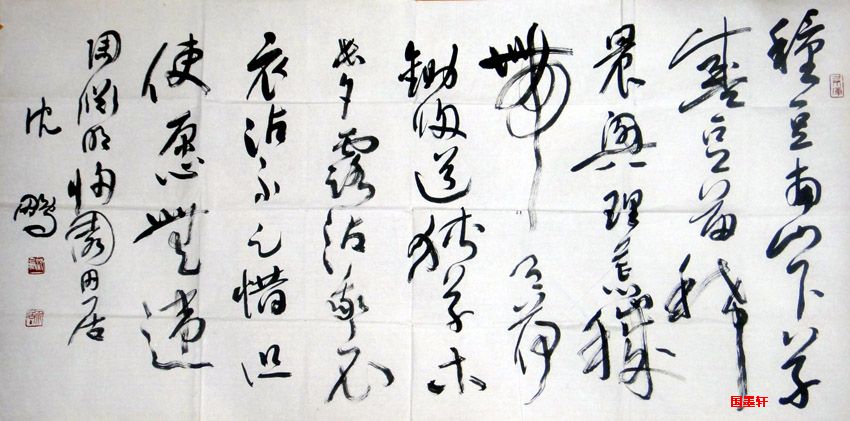 種豆南山下草
盛豆苗稀
晨興理荒穢
帶月荷
鋤歸道狹草木
長夕露沾我衣
衣沾不足惜但
使愿無違
陶淵明歸園田居
沈鵬
国墨轩